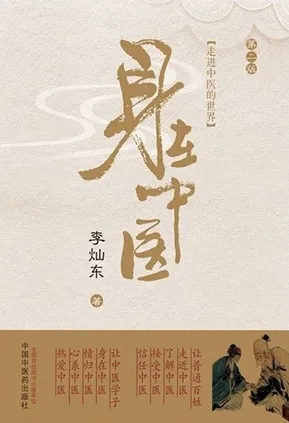 第二版
【走进中医的世界】
身在中医
李灿东
著
让普通百姓
走进中医
了解中医
接受中医
信任中医
让中医学子
身在中医
情归中医
心系中医
热爱中医
全国百佳图书出版单位
中国中医药出版社